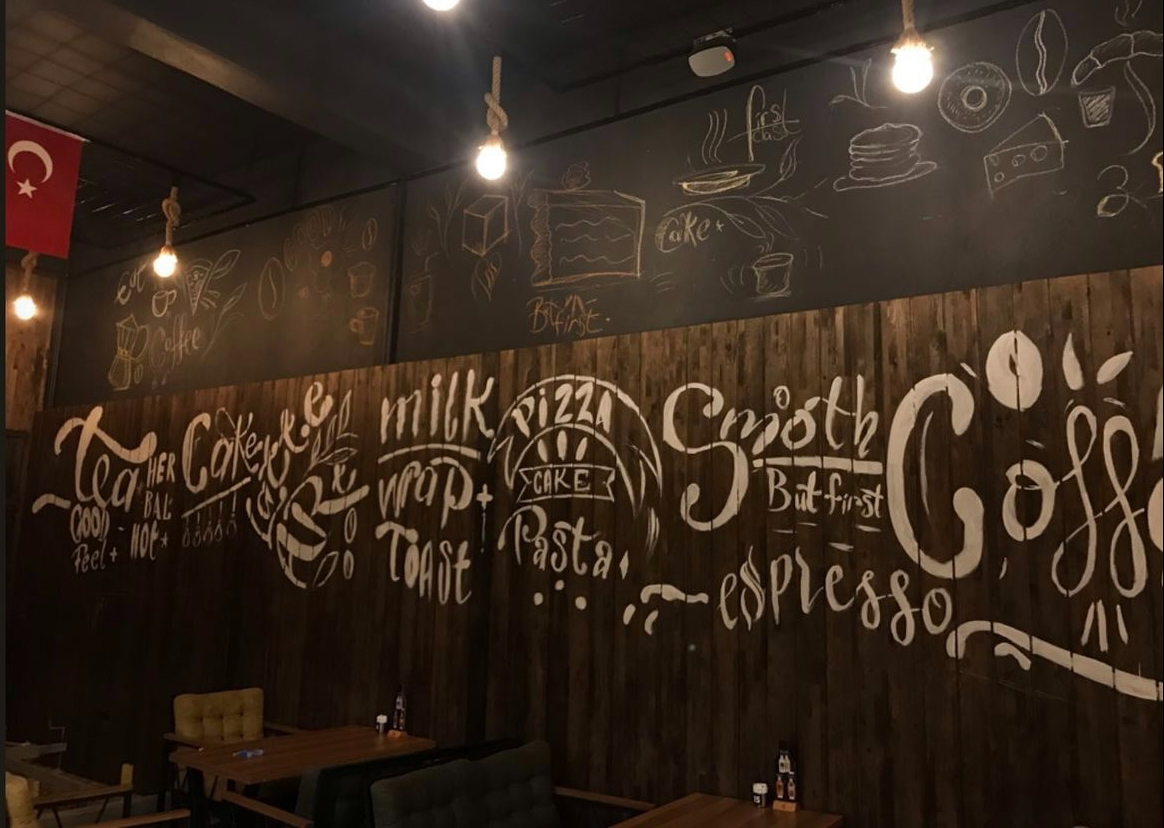 first
Cake
But
first.
Coffee
Tea
HER
BAL
GOOD
Feel+
HOT
Cake
milk
wrap+
TOAST
PIZZA
CAKE
Pasta
Smooth
But first
espresso
Coff